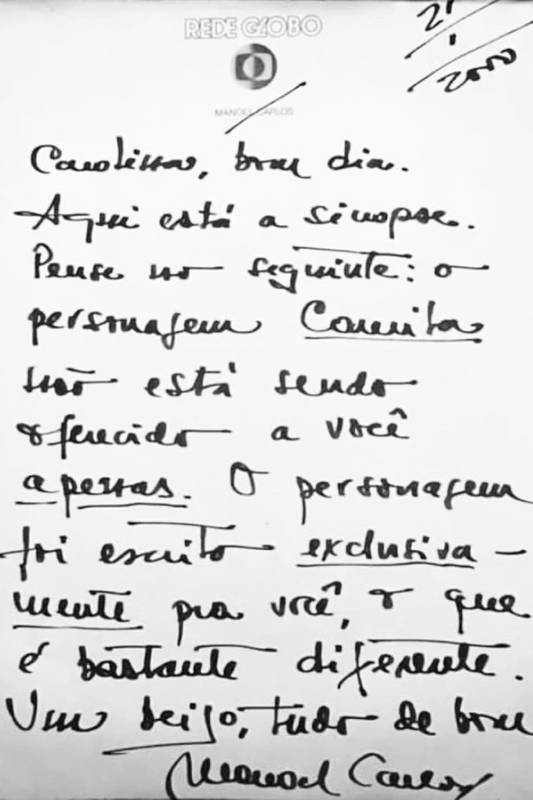 REDE GLOBO
2/1/2000
MANOEL CARLOS
Carolina, bom dia.
Aqui está a sinopse.
Pense no seguinte: o
personagem Camila
não está sendo
oferecido a você
apenas. O personagem
foi escrito exclusiva-
mente pra você, o que
é bastante diferente.
Um beijo, tudo de bom
Manoel Carlos